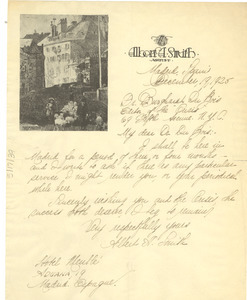 Albert A. Smith
Madrid, Spain
December, 19, 1925
Dr. Burghardt Du Bois
Editor of the Crisis
69 Fifth Avenue N.Y.C.
My dear Dr. Du Bois.
I shall be here in
Madrid for a period of three or four months
and wish to ask if there is any particular
service I might render you or your periodical
while here.
Sincerely wishing you and the Crisis the
success both desire, I beg to remain
Very respectfully yours
Albert A. Smith
Hotel
Madrid Espagne.